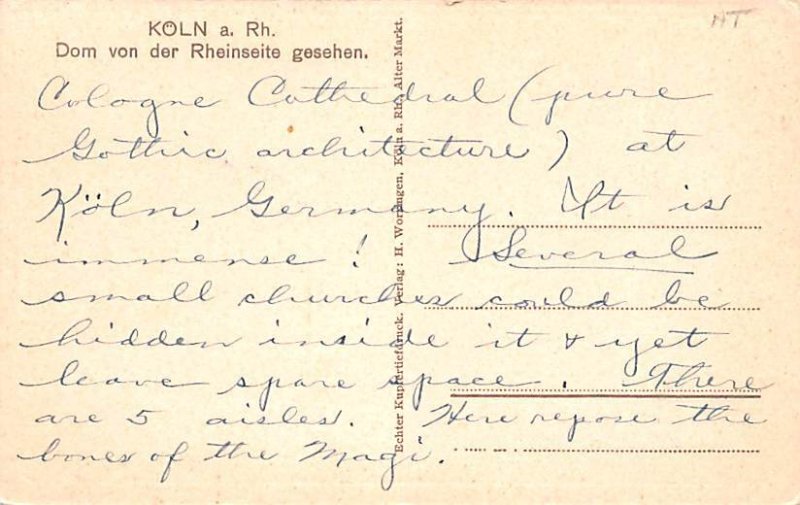 NT
KÖLN a. Rh.
Dom von der Rheinseite gesehen.
Cologne Cathedral (pure
Gothic architecture) at
Köln, Germany. It is
immense! Several
small churches could be
hidden inside it & yet
leave spare space. There
are 5 aisles. Here repose the
bones of the Magi.
Echter Kupfertiefdruck. Verlag: H. Worringen, Köln a. Rh., Alter Markt.